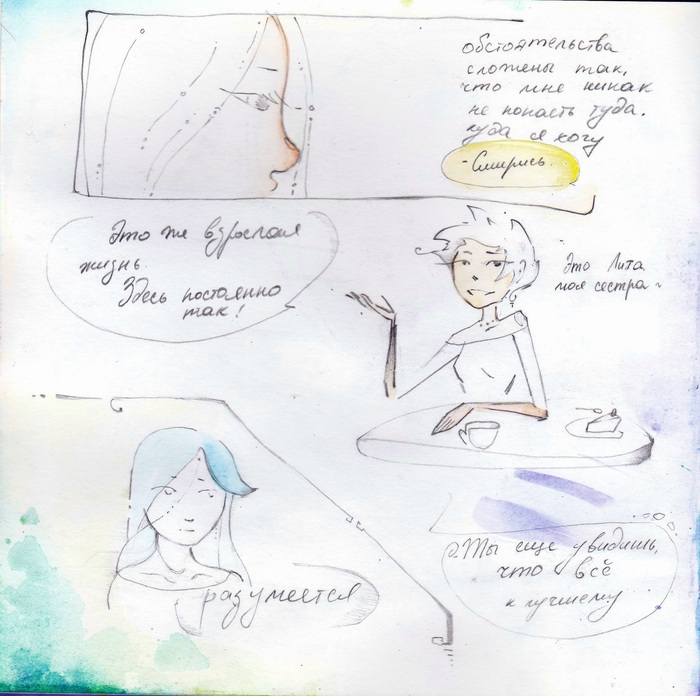 обстоятельства
сложены так,
что мне никак
не попасть туда,
куда я хочу
- Смирись.
Это же взрослая
жизнь.
Здесь постоянно
так!
Это Лита
моя сестра
Ты еще увидишь,
что всё
к лучшему
разумеется